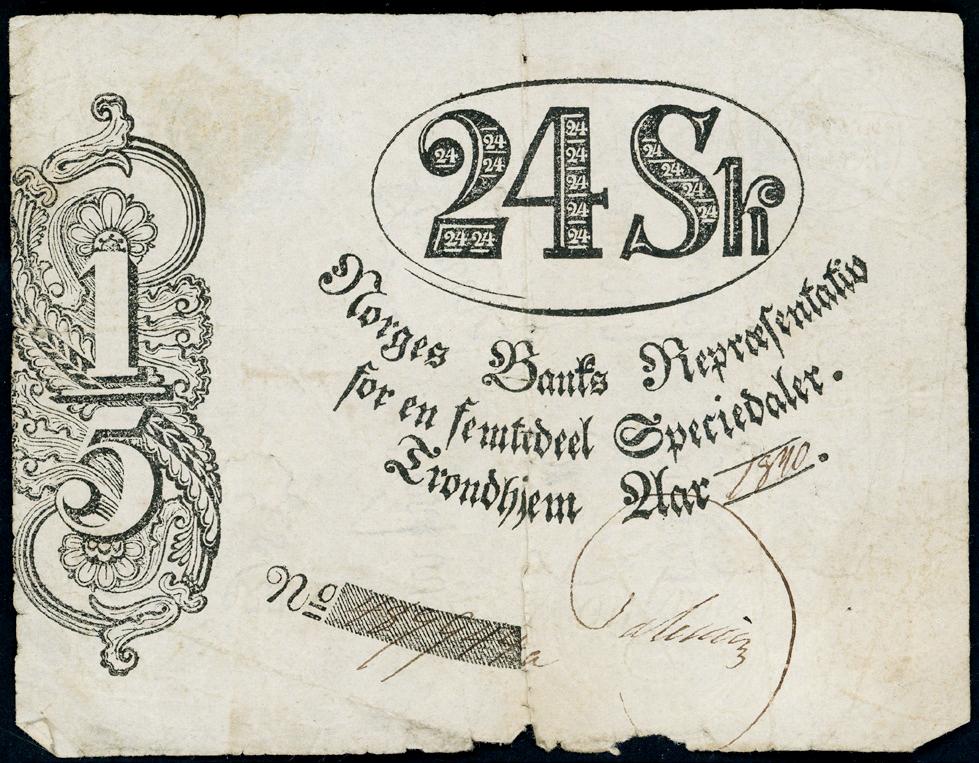 24 Sk
24 24 24 24 24 24 24 24 24 24 24 24 24 24
1
5
Norges Banks Repræsentativ
for en femtedeel Speciedaler.
Trondhjem Aar 1840.
No